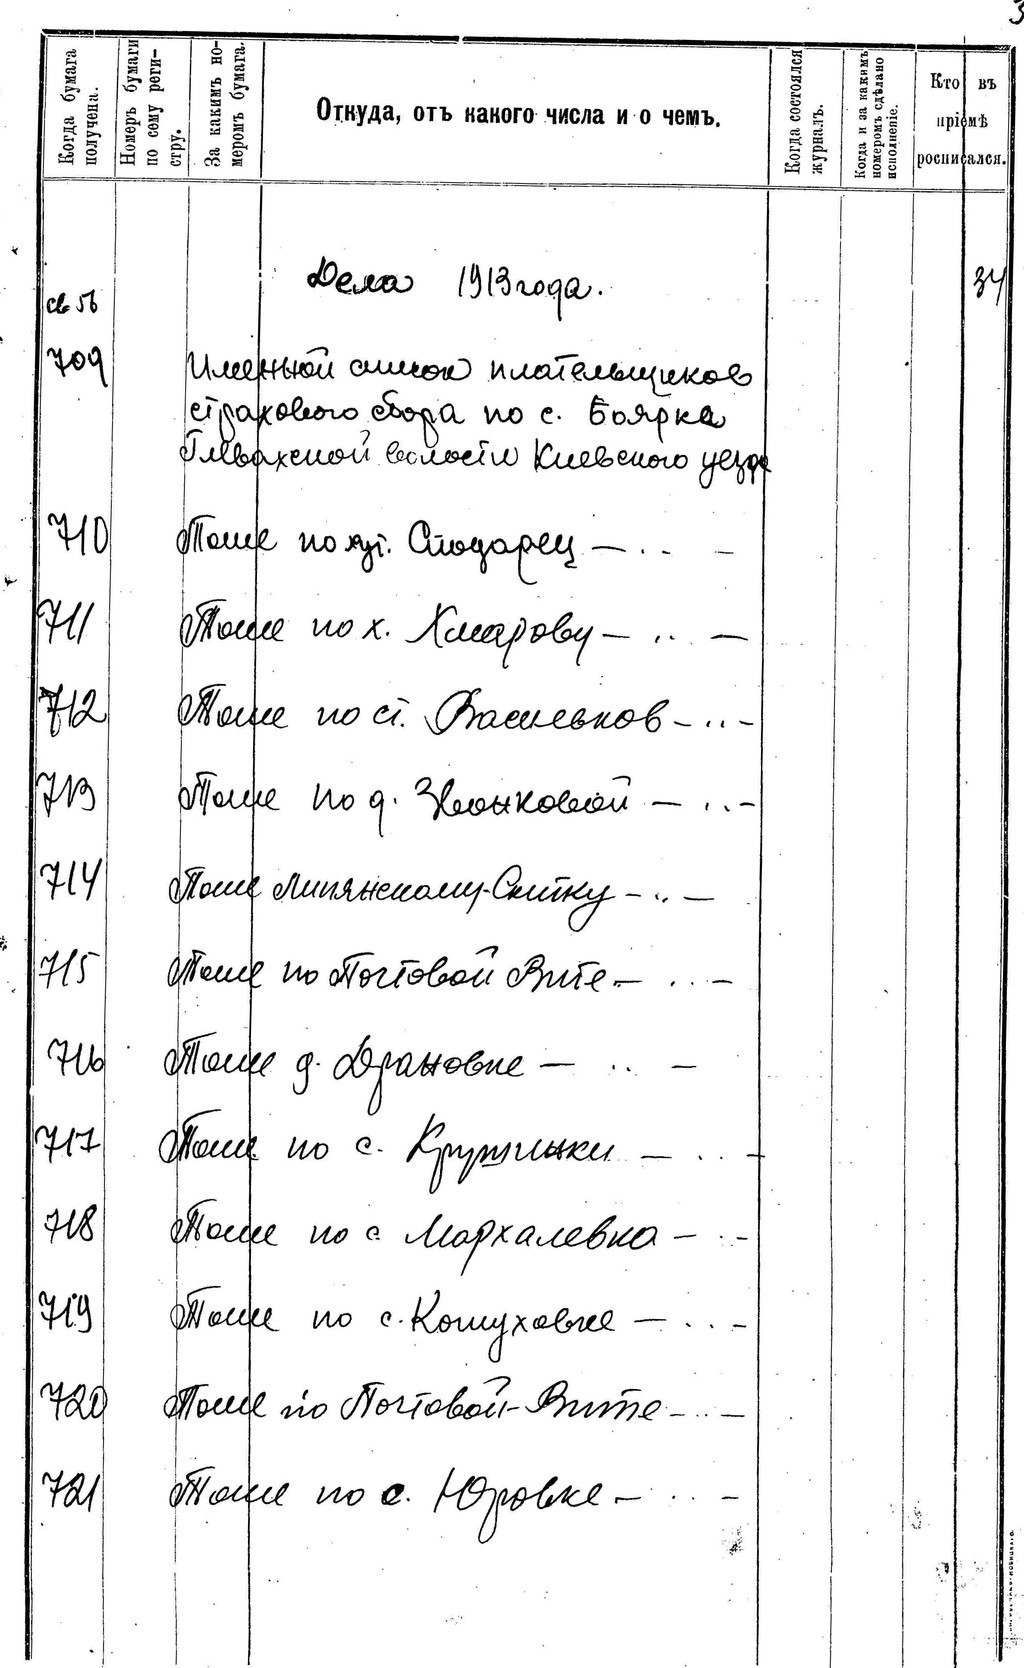 3
Когда бумага получена.
Номеръ бумаги по сему реги-стру.
За какимъ но-меромъ бумага.
Откуда, отъ какого числа и о чемъ.
Когда состоялся журналъ.
Когда и за какимъ номеромъ сдѣлано исполненіе.
Кто въ пріемѣ росписался.
Дела 1913 года.
34
св 56
709 Именной список плательщиков
страхового сбора по с. Боярка
Глевахской волости Киевского уезда
710 Тоже по хут. Сподарец — „ —
711 Тоже по х. Хмарову — „ —
712 Тоже по ст. Васильков — „ —
713 Тоже по д. Звонковой — „ —
714 Тоже Липянскому-Скитку — „ —
715 Тоже по Почтовой Вите — „ —
716 Тоже д. Драновке — „ —
717 Тоже по с. Кружинки — „ —
718 Тоже по с Мархалевка — „ —
719 Тоже по с. Кожуховке — „ —
720 Тоже по Почтовой-Вите — „ —
721 Тоже по с. Юровке — „ —